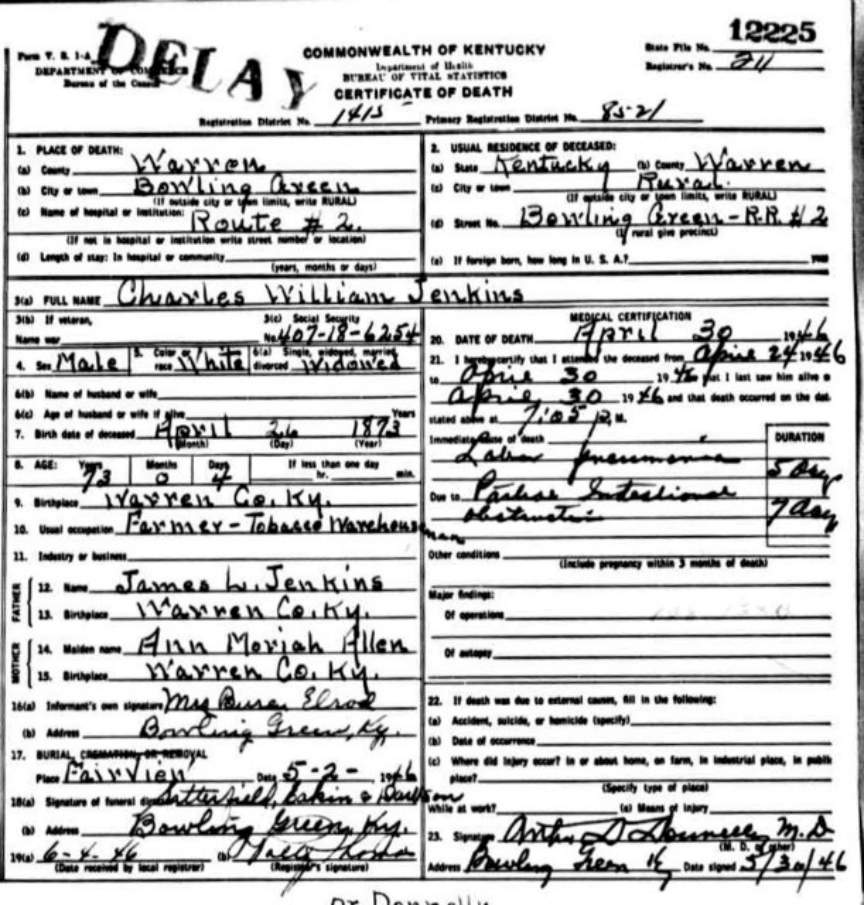 12225
Form V. S. 1-A
DELAY
COMMONWEALTH OF KENTUCKY
State File No.
DEPARTMENT OF COMMERCE
Department of Health
Registrar's No. 211
Bureau of the Census
BUREAU OF VITAL STATISTICS
CERTIFICATE OF DEATH
Registration District No. 1415 Primary Registration District No. 85-21
1. PLACE OF DEATH:
(a) County Warren
(b) City or town Bowling Green
(If outside city or town limits, write RURAL)
(c) Name of hospital or institution:
Route # 2.
(If not in hospital or institution write street number or location)
(d) Length of stay: In hospital or community
(years, months or days)
2. USUAL RESIDENCE OF DECEASED:
(a) State Kentucky (b) County Warren
(c) City or town Rural.
(If outside city or town limits, write RURAL)
(d) Street No. Bowling Green - R.R. # 2
(If rural give precinct)
(e) If foreign born, how long in U. S. A.? years
3(a) FULL NAME Charles William Jenkins
3(b) If veteran,
Name war
3(c) Social Security
No. 407-18-6254
4. Sex Male 5. Color or race White 6(a) Single, widowed, married divorced Widowed
6(b) Name of husband or wife
6(c) Age of husband or wife if alive Years
7. Birth date of deceased April 26 1873
(Month) (Day) (Year)
8. AGE: Years 73 Months 0 Days 4 If less than one day
hr. min.
9. Birthplace Warren Co. Ky.
10. Usual occupation Farmer - Tobacco Warehouseman
11. Industry or business
FATHER
12. Name James W. Jenkins
13. Birthplace Warren Co. Ky.
MOTHER
14. Maiden name Ann Moriah Allen
15. Birthplace Warren Co. Ky.
16(a) Informant's own signature Elrod
(b) Address Bowling Green, Ky.
17. BURIAL, CREMATION, OR REMOVAL
Place Fairview Date 5-2- 1946
18(a) Signature of funeral director Satterfield,
(b) Address Bowling Green, Ky.
19(a) 6-4-46 (b)
(Date received by local registrar) (Registrar's signature)
MEDICAL CERTIFICATION
20. DATE OF DEATH April 30 1946
21. I hereby certify that I attended the deceased from April 24 1946
to April 30 1946 that I last saw him alive o
April 30 1946 and that death occurred on the dat
stated above at 7:05 P. M.
Immediate cause of death
DURATION
Lobar pneumonia
5 day
Due to Intestional
obstruction 7 day
Other conditions
(Include pregnancy within 3 months of death)
Major findings:
Of operations
Of autopsy
22. If death was due to external causes, fill in the following:
(a) Accident, suicide, or homicide (specify)
(b) Date of occurrence
(c) Where did injury occur? In or about home, on farm, in industrial place, in public
place?
(Specify type of place)
While at work? (e) Means of injury
23. Signature Arthur D Donnelly, M.D
(M. D. or other)
Address Bowling Green Ky Date signed 5/30/46
Dr Donnelly